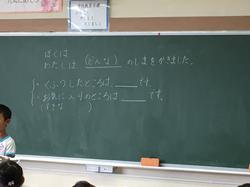 ぼくは
わたしは、(どんな)のしまをかきました。
・くふうしたところは____です。
・お気に入りのところは____です。
(すきな　　)